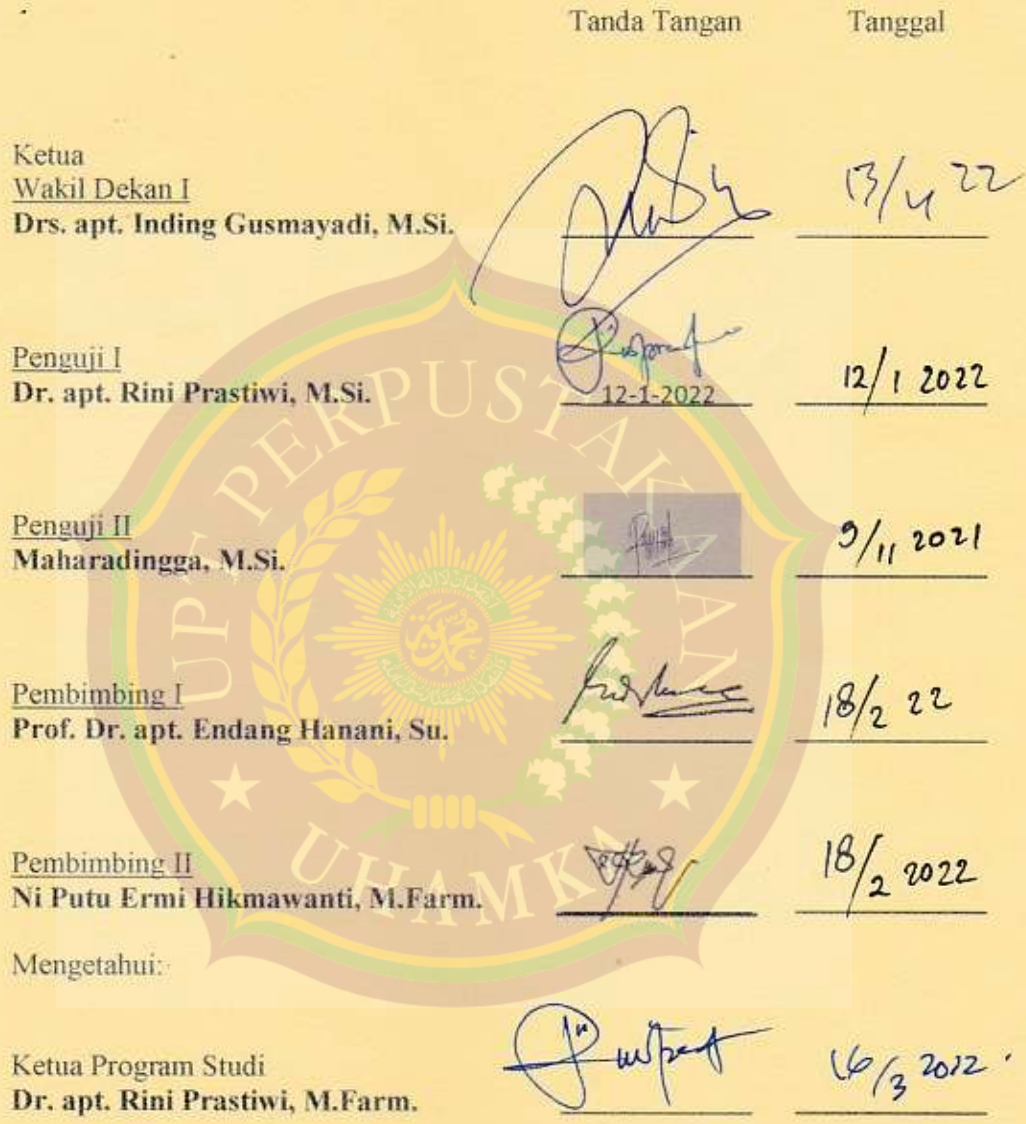 Tanda Tangan Tanggal
Ketua
Wakil Dekan I
Drs. apt. Inding Gusmayadi, M.Si.
13/4 22
Penguji I
Dr. apt. Rini Prastiwi, M.Si.
12-1-2022
12/1 2022
Penguji II
Maharadingga, M.Si.
9/11 2021
Pembimbing I
Prof. Dr. apt. Endang Hanani, Su.
18/2 22
Pembimbing II
Ni Putu Ermi Hikmawanti, M.Farm.
18/2 2022
Mengetahui:
Ketua Program Studi
Dr. apt. Rini Prastiwi, M.Farm.
16/3 2022
UPT PERPUSTAKAAN
UHAMKA